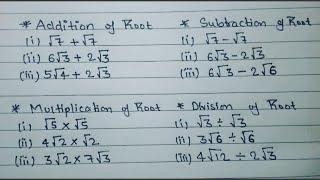 * Addition of Root
(i) √7 + √7
(ii) 6√3 + 2√3
(iii) 5√4 + 2√3
* Subtraction of Root
(i) √7 - √7
(ii) 6√3 - 2√3
(iii) 6√3 - 2√6
* Multiplication of Root
(i) √5 × √5
(ii) 4√2 × √2
(iii) 3√2 × 7√3
* Division of Root
(i) √3 ÷ √3
(ii) 3√6 ÷ √6
(iii) 4√12 ÷ 2√3